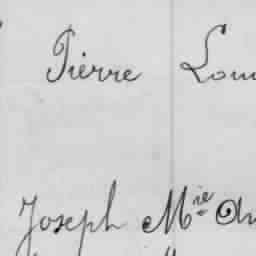 Pierre Lou
Joseph Mie